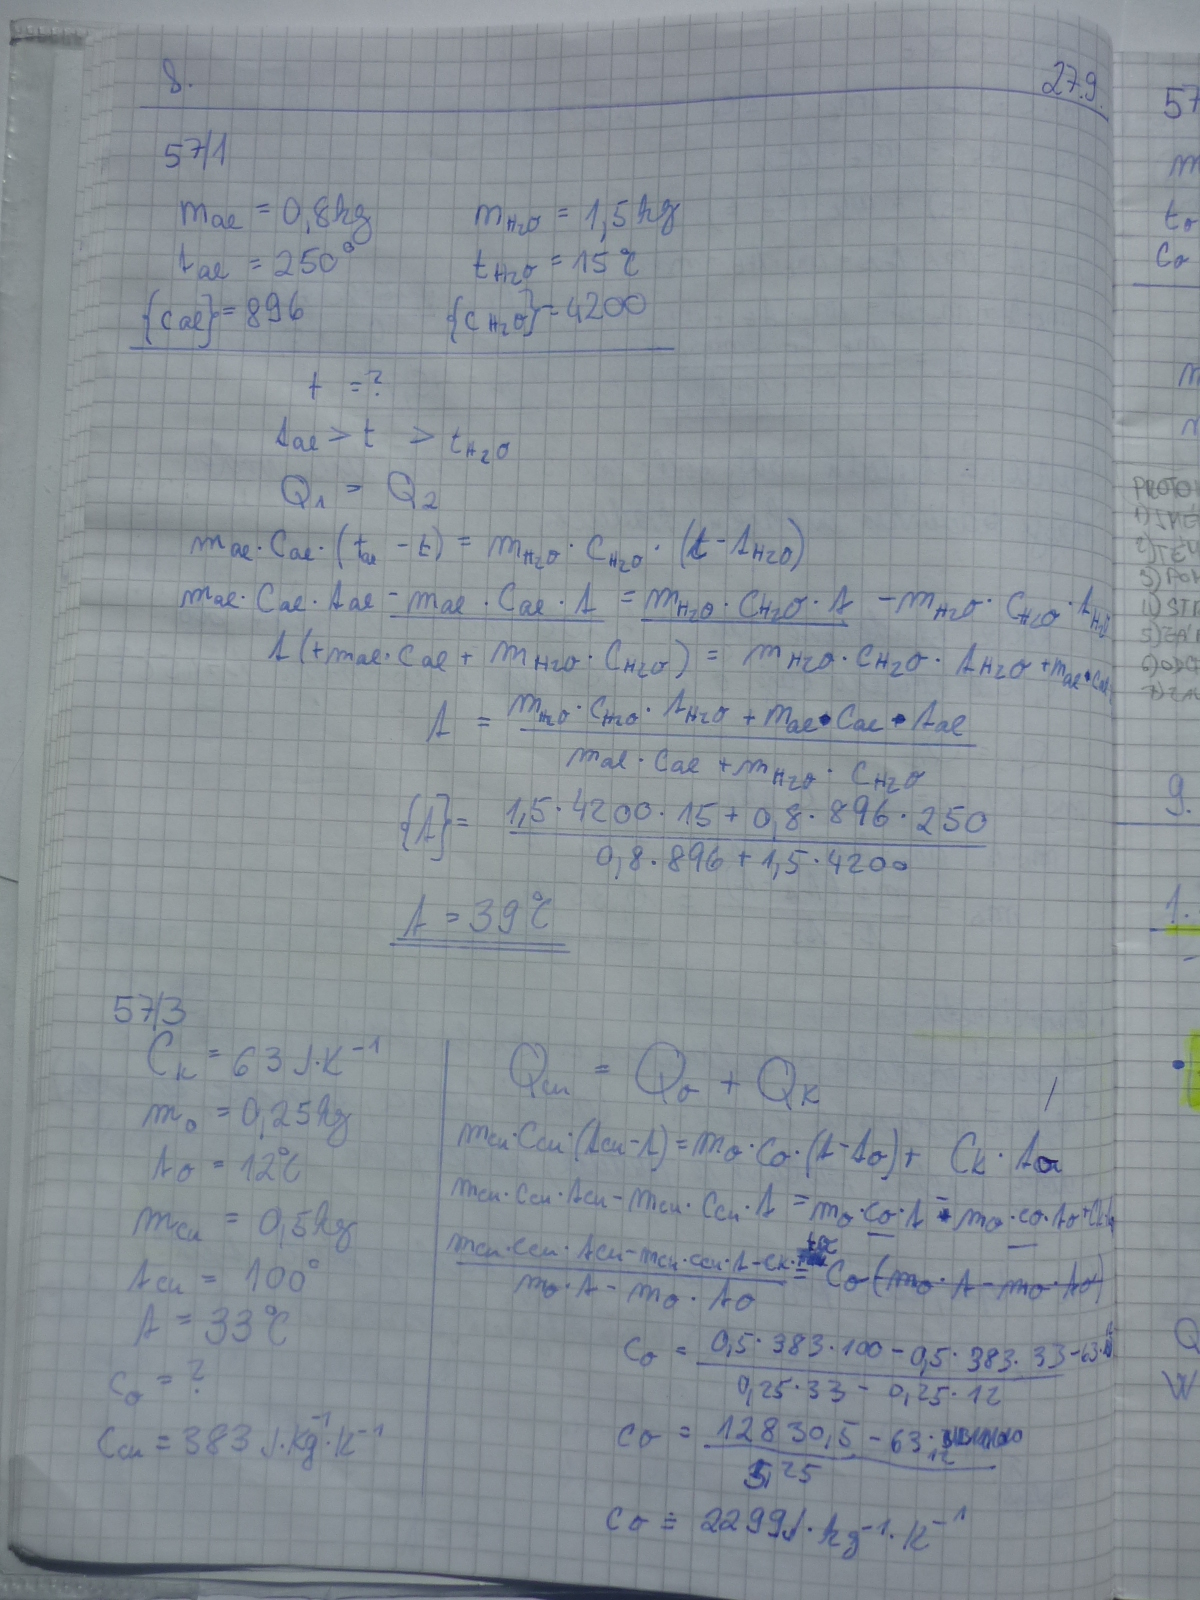 8. 27.9.
57/1
m_al = 0,8kg m_H₂O = 1,5kg
t_al = 250° t_H₂O = 15°C
{c_al} = 896 {c_H₂O} = 4200
t = ?
t_al > t > t_H₂O
Q₁ = Q₂
m_al · c_al · (t_al - t) = m_H₂O · c_H₂O · (t - t_H₂O)
m_al · c_al · t_al - m_al · c_al · t = m_H₂O · c_H₂O · t - m_H₂O · c_H₂O · t_H₂O
t(+m_al · c_al + m_H₂O · c_H₂O) = m_H₂O · c_H₂O · t_H₂O + m_al · c_al
t = (m_H₂O · c_H₂O · t_H₂O + m_al · c_al · t_al) / (m_al · c_al + m_H₂O · c_H₂O)
{t} = (1,5 · 4200 · 15 + 0,8 · 896 · 250) / (0,8 · 896 + 1,5 · 4200)
t = 39°C
57/3
C_k = 63 J·K⁻¹
m_o = 0,25kg
t_o = 12°C
m_cu = 0,5kg
t_cu = 100°
t = 33°C
c_o = ?
c_cu = 383 J·kg⁻¹·K⁻¹
Q_cu = Q_o + Q_k
m_cu · c_cu · (t_cu - t) = m_o · c_o · (t - t_o) + C_k · t_o
m_cu · c_cu · t_cu - m_cu · c_cu · t = m_o · c_o · t - m_o · c_o · t_o +
(m_cu · c_cu · t_cu - m_cu · c_cu · t - c_k · t_o) / (m_o · t - m_o · t_o) = c_o (m_o · t - m_o · t_o)
c_o = (0,5 · 383 · 100 - 0,5 · 383 · 33 - 63 ·) / (0,25 · 33 - 0,25 · 12)
c_o = (12830,5 - 63 · 12) / 5,25
c_o = 2299 J·kg⁻¹·K⁻¹
57
m
t_o
c_o
m
PROTO
1)
2)
3)
4)
5)
6)
7)
9.
1.
-
Q
W